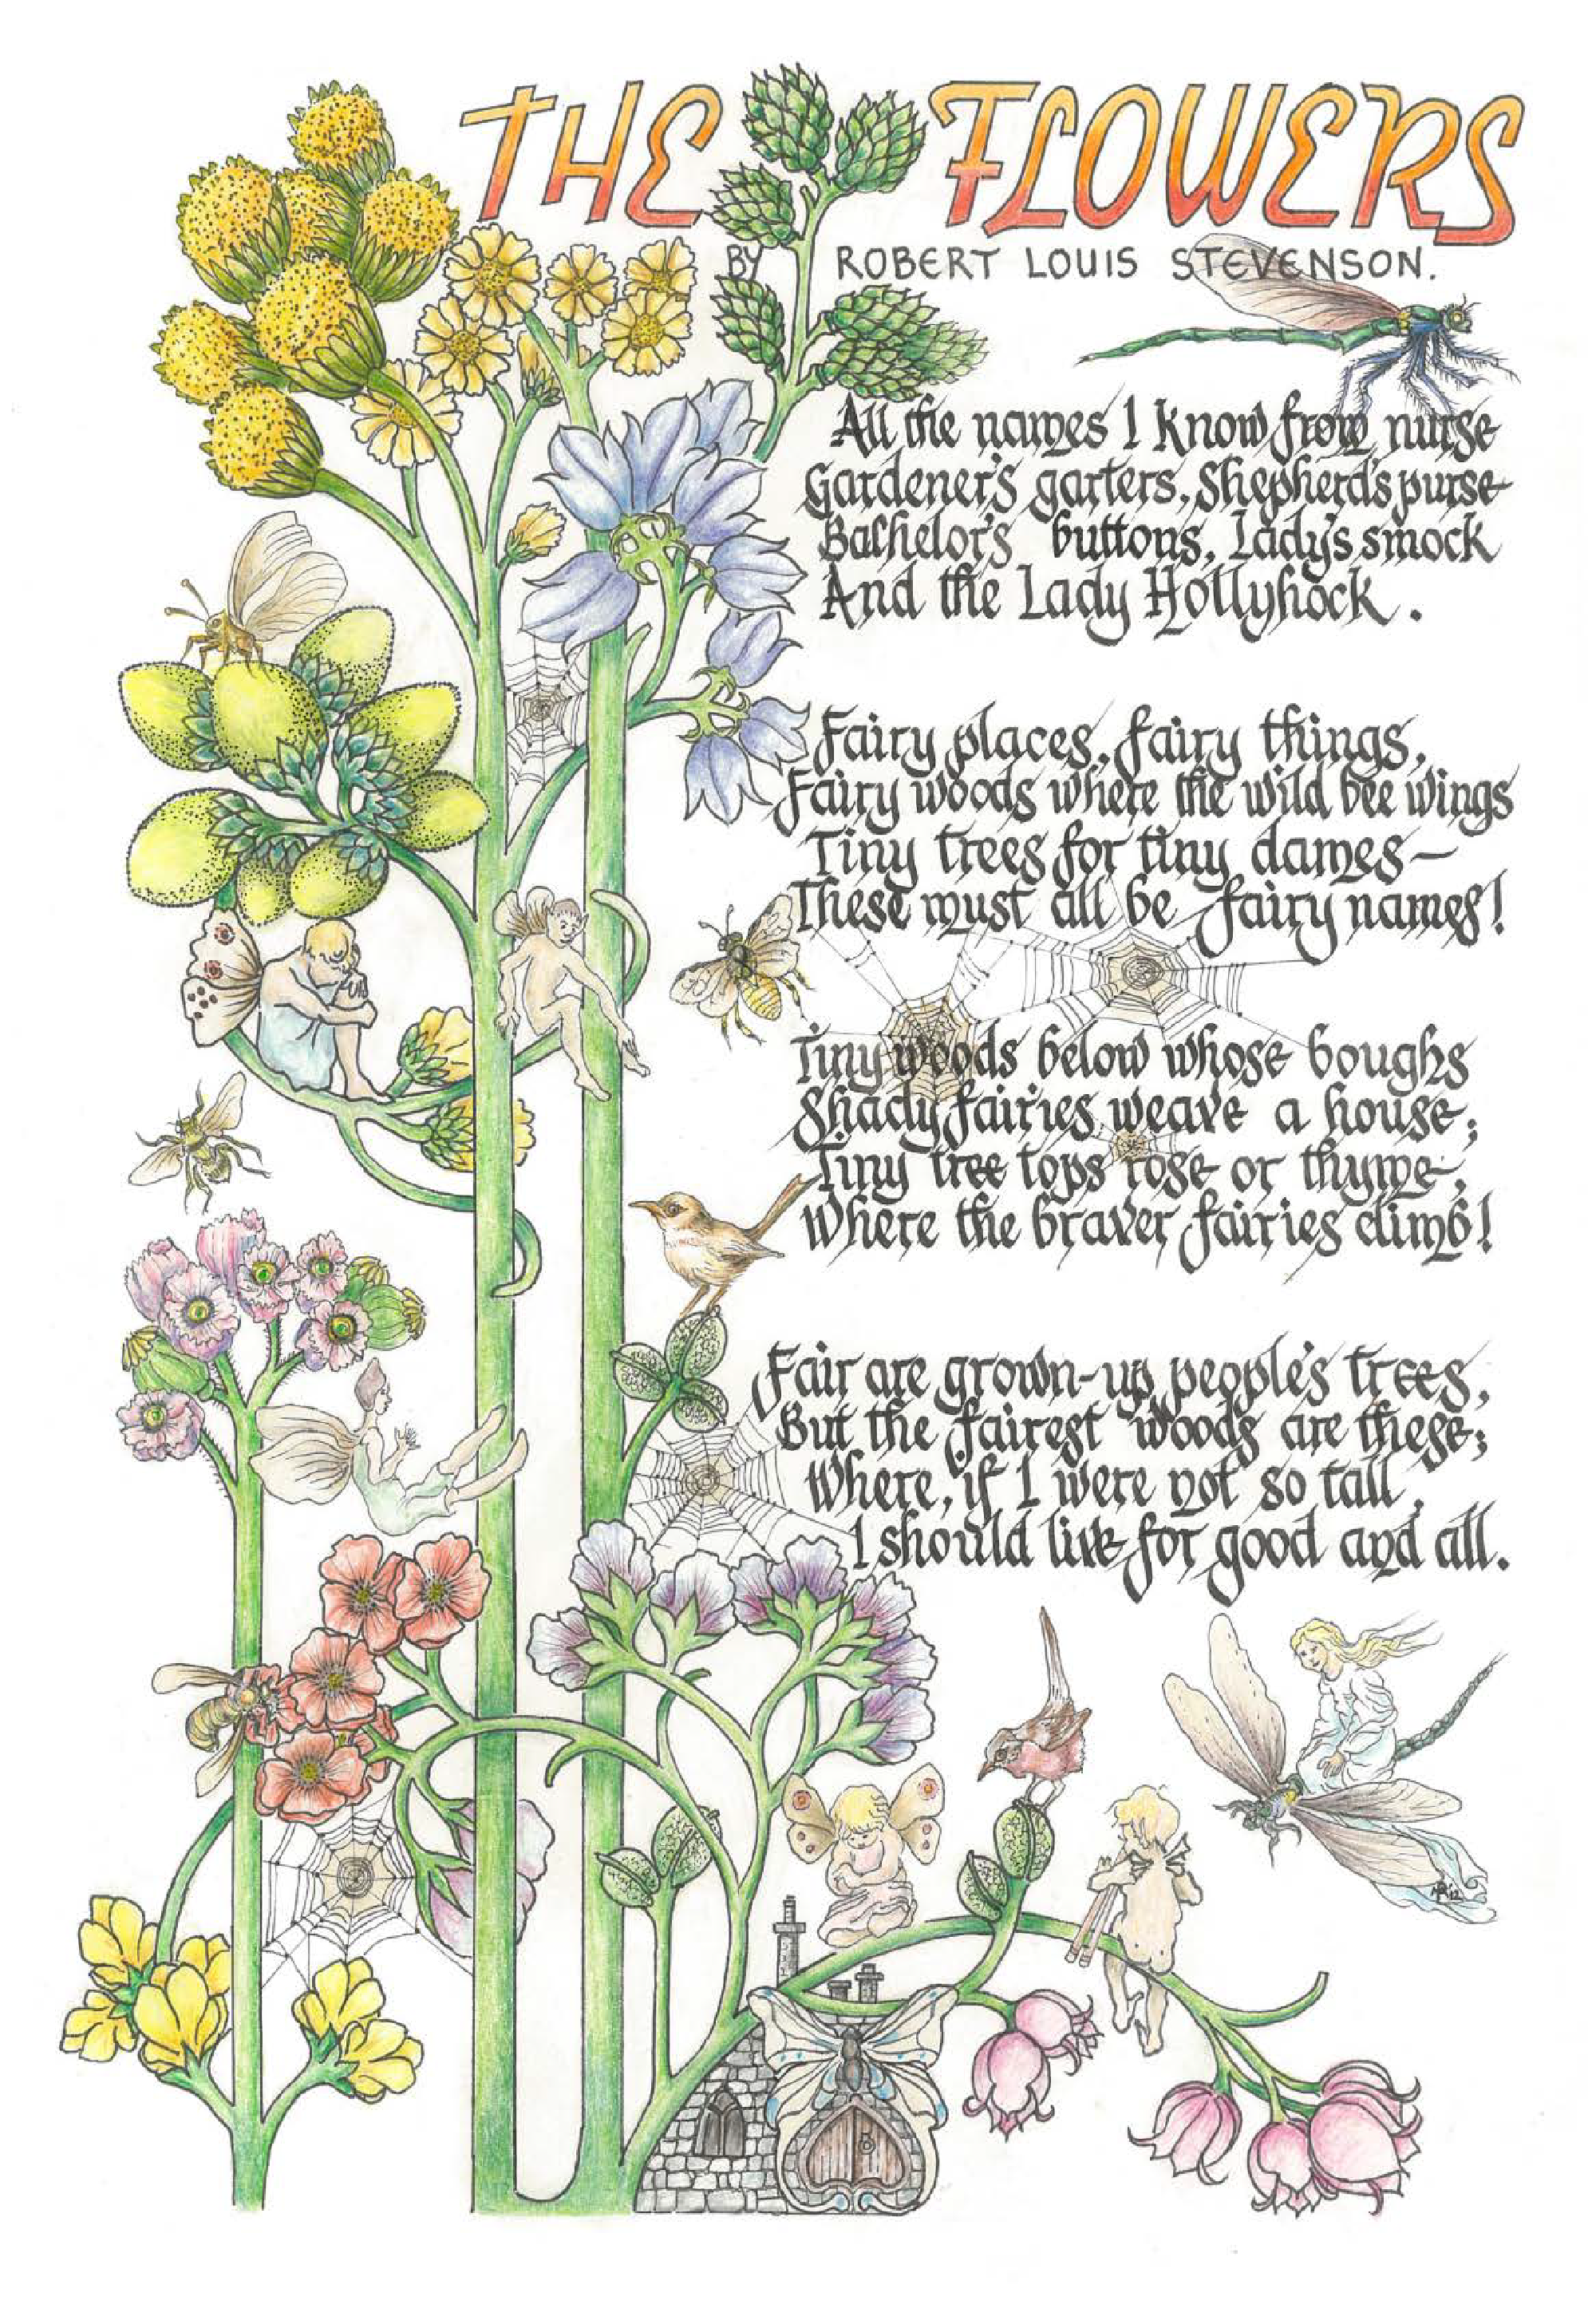 THE FLOWERS
BY ROBERT LOUIS STEVENSON.
All the names I know from nurse
Gardener's garters, Shepherd's purse
Bachelor's buttons, Lady's smock
And the Lady Hollyhock.
Fairy places, fairy things,
Fairy woods where the wild bee wings
Tiny trees for tiny dames—
These must all be fairy names!
Tiny woods below whose boughs
Shady fairies weave a house;
Tiny tree tops rose or thyme,
Where the braver fairies climb!
Fair are grown-up people's trees,
But the fairest woods are these;
Where, if I were not so tall,
I should live for good and all.